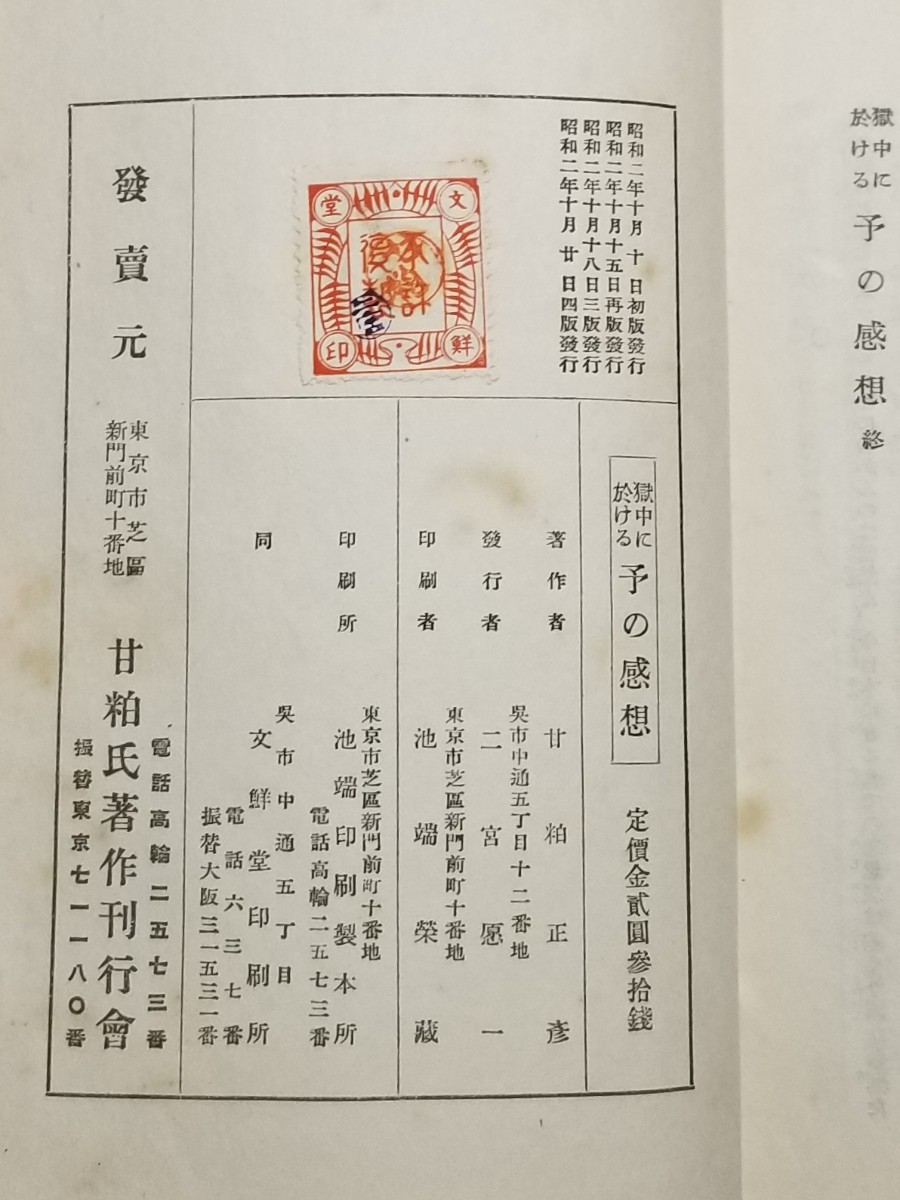 獄中に於ける 予の感想 終
昭和二年十月十日初版發行
昭和二年十月十五日再版發行
昭和二年十月十八日三版發行
昭和二年十月廿日四版發行
文
堂
鮮
印
獄中に於ける 予の感想
定價金貳圓參拾錢
著作者 甘粕正彥
吳市中通五丁目十二番地
發行者 二宮愿一
東京市芝區新門前町十番地
印刷者 池端榮藏
東京市芝區新門前町十番地
印刷所 池端印刷製本所
電話高輪二五七三番
吳市中通五丁目
同 文鮮堂印刷所
電話六三七番
振替大阪三一五三一番
發賣元
東京市芝區
新門前町十番地
電話高輪二五七三番
甘粕氏著作刊行會
振替東京七一一八〇番